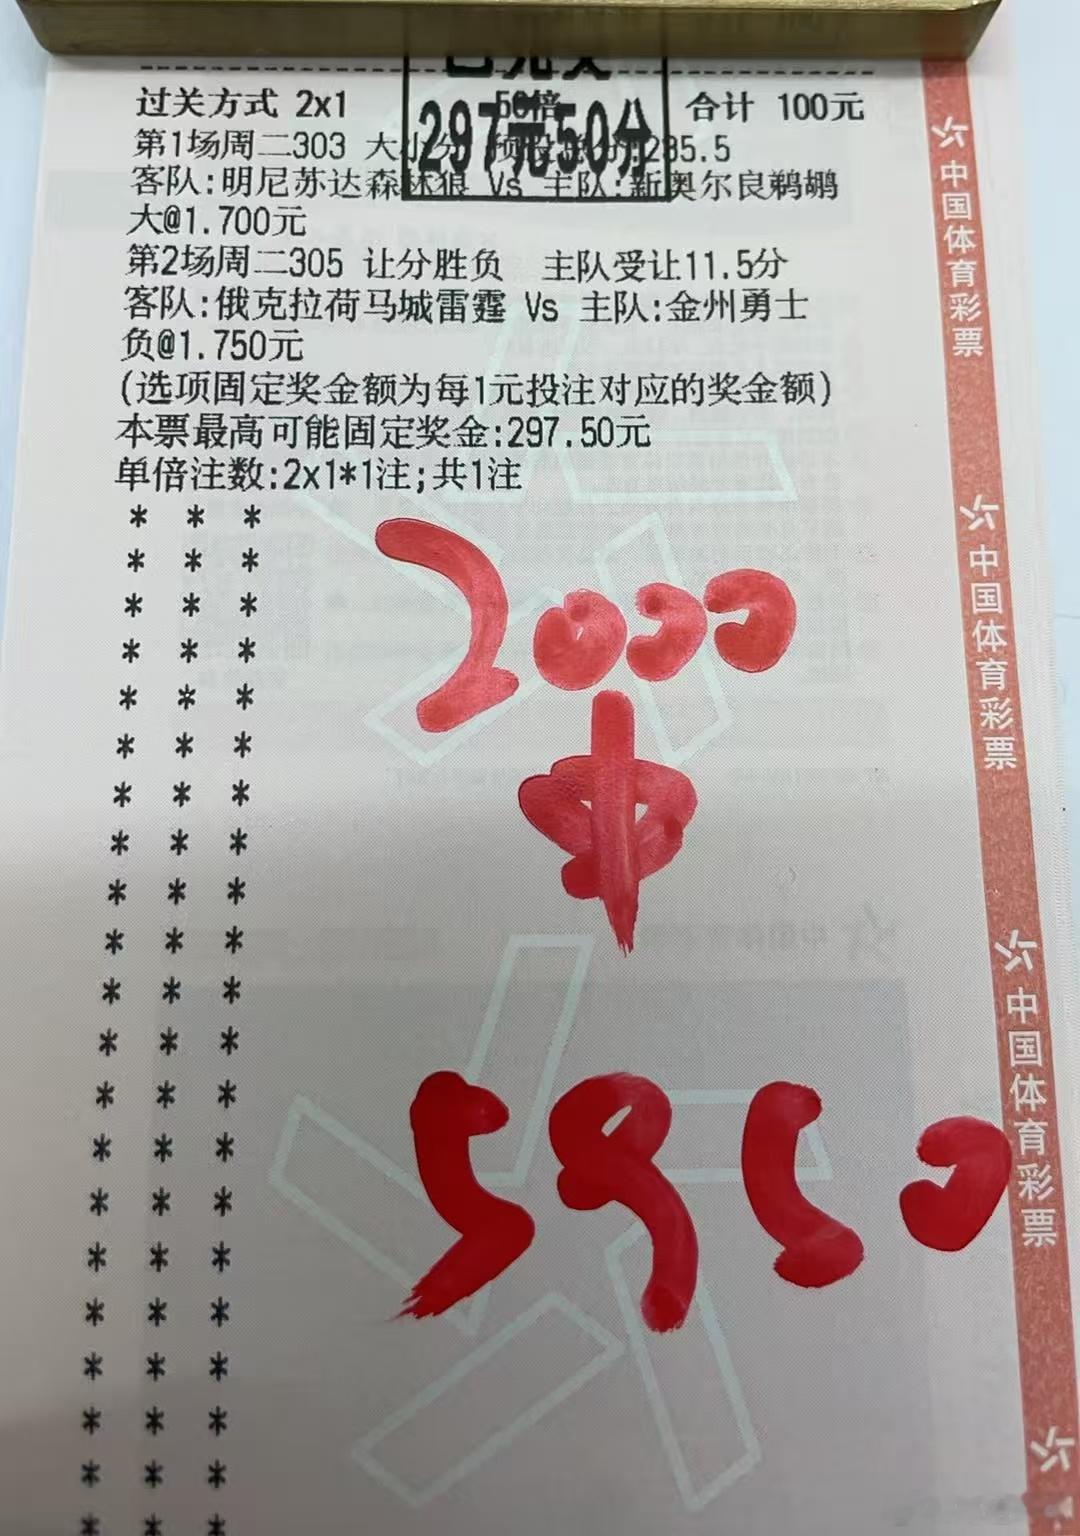 已兑奖
297元50分
过关方式 2x1 50倍 合计 100元
第1场周二303 大小分 预设总分:235.5
客队:明尼苏达森林狼 Vs 主队:新奥尔良鹈鹕
大@1.700元
第2场周二305 让分胜负 主队受让11.5分
客队:俄克拉荷马城雷霆 Vs 主队:金州勇士
负@1.750元
(选项固定奖金额为每1元投注对应的奖金额)
本票最高可能固定奖金:297.50元
单倍注数:2x1*1注;共1注
* * *
* * *
* * *
* * *
* * *
* * *
* * *
* * *
* * *
* * *
* * *
* * *
* * *
* * *
* * *
* * *
* * *
* * *
* * *
* * *
* * *
2000
中
5950
中国体育彩票
中国体育彩票
中国体育彩票